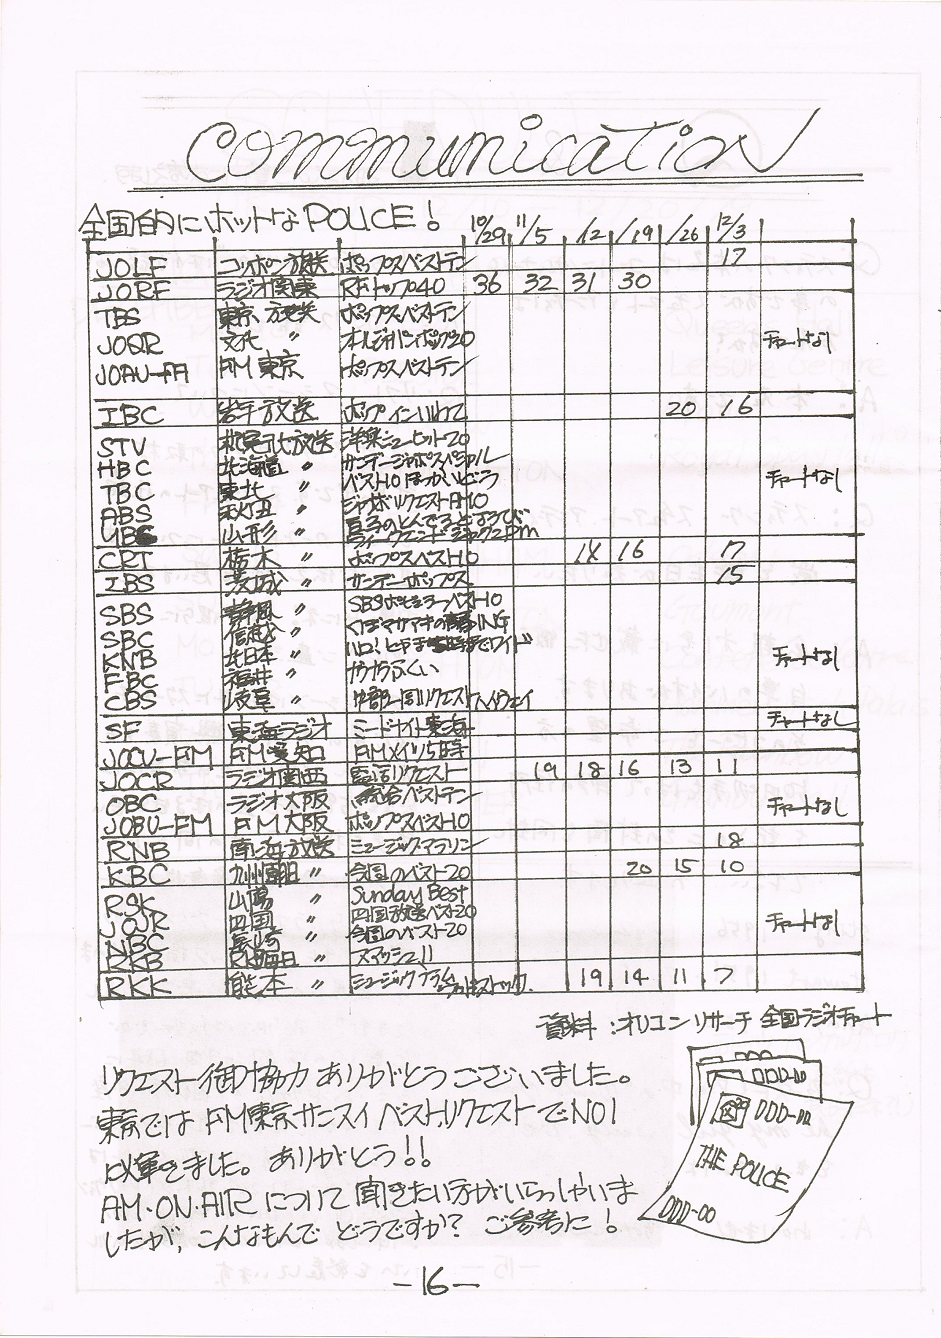 Communication
全国的にホットなPOLICE! 10/29 11/5 /12 /19 /26 12/3
JOLF ニッポン放送 ポップスベストテン 17
JORF ラジオ関東 RFトップ40 36 32 31 30
TBS 東京放送 ポップスベストテン
JOQR 文化 〃 オールジャパンポップ20 チャートなし
JOAU-FM FM東京 ポップスベストテン
IBC 岩手放送 ポップインいわて 20 16
STV 札幌TV放送 洋楽ニューヒット20
HBC 北海道 〃 サンデージャンボスペシャル
TBC 東北 〃 ベスト10 チャートなし
ABS 秋田 〃 ジャンボリクエストAM10
山形 〃
CRT 栃木 〃 ポップスベスト10 14 16 17
IBS 茨城 〃 サンデーポップス 15
SBS 静岡 〃 SBSポピュラーベスト10
SBC 信越 〃
KNB 北日本 〃 チャートなし
FBC 福井 〃
CBS 岐阜 〃 中部一周リクエストハイウェイ
SF 東海ラジオ ミッドナイト東海 チャートなし
JOCV-FM FM愛知 FMメイツ5時
JOCR ラジオ関西 電話リクエスト 19 18 16 13 11
OBC ラジオ大阪 総合ベストテン チャートなし
JOBU-FM FM大阪 ポップスベスト10
RNB 南海放送 ミュージックマラソン 18
KBC 九州朝日 〃 今週のベスト20 20 15 10
RSK 山陽 〃 Sunday Best
JOJR 四国 〃 四国放送ベスト20 チャートなし
NBC 長崎 〃 今週のベスト20
RKB RKB毎日 〃 スマッシュ11
RKK 熊本 〃 ミュージックプラム 19 14 11 7
資料:オリコンリサーチ 全国ラジオチャート
リクエスト御協力ありがとうございました。
東京ではFM東京サンスイベストリクエストでNO1
に輝きました。ありがとう!!
AM・ON・AIRについて聞きたい方がいらっしゃいま
したが、こんなもんでどうですか? ご参考に!
DDD-00
DDD-00
THE POLICE
DDD-00
-16-